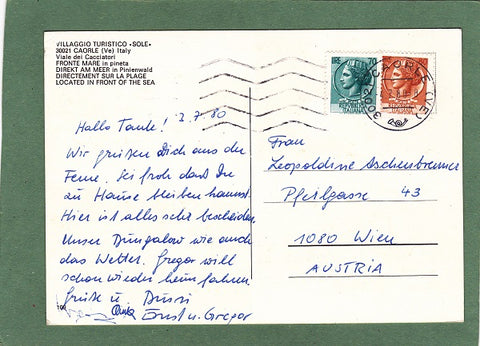 VILLAGGIO TURISTICO «SOLE»
30021 CAORLE (Ve) Italy
Viale dei Cacciatori
FRONTE MARE in pineta
DIREKT AM MEER in Pinienwald
DIRECTEMENT SUR LA PLAGE
LOCATED IN FRONT OF THE SEA
70
ITALIANA
ITALIANA
CAORLE (VE)
Hallo Tante! 2.7.80
Wir grüßen Dich aus der
Ferne. Sei froh dass Du
zu Hause bleiben kannst.
Hier ist alles sehr bescheiden.
Unser Bungalow wie auch
das Wetter. Gregor will
schon wieder heim fahren.
Grüße u. Bussi
Ernst u. Gregor
Frau
Leopoldine Aschenbrenner
Pfeilgasse 43
1080 Wien
AUSTRIA